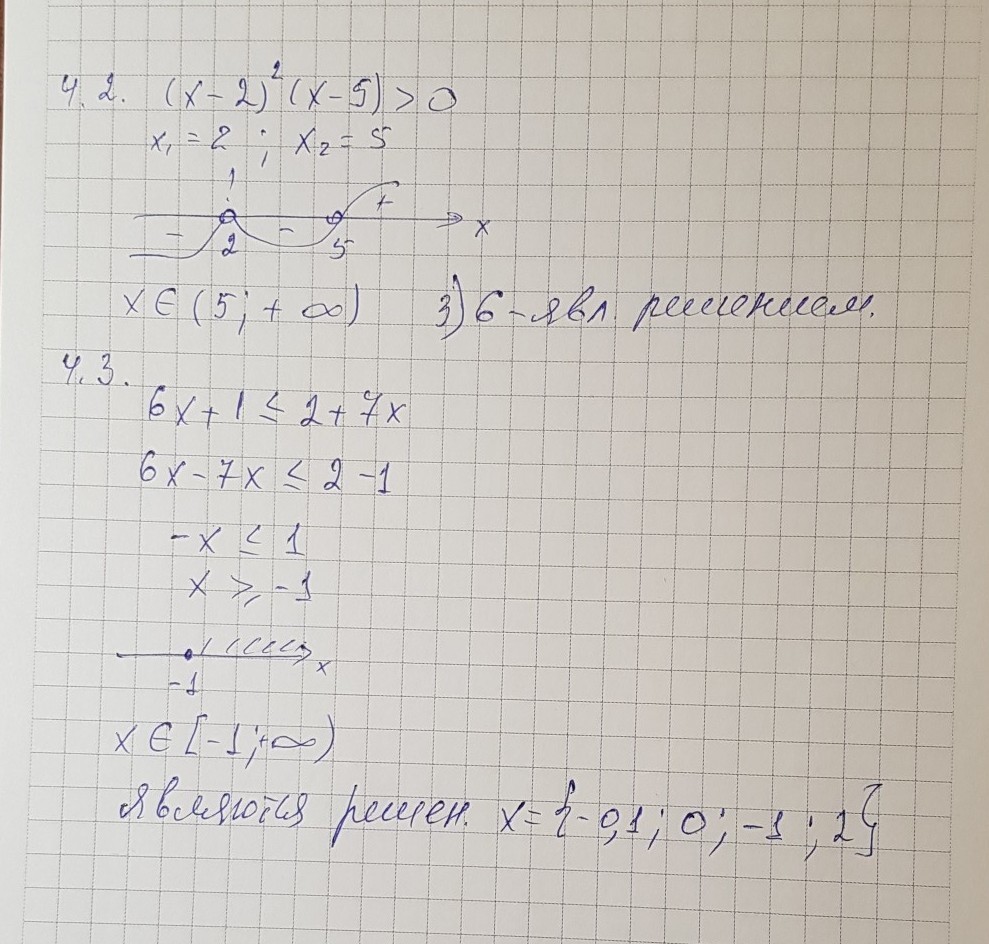 4.2. (x-2)²(x-5)>0
x₁=2 ; x₂=5
!
- 2 - 5 + x
x∈(5;+∞) 3) 6-явл. решением.
4.3.
6x+1≤2+7x
6x-7x≤2-1
-x≤1
x≥-1
-1 x
x∈[-1;+∞)
являются решен. x={-0,1; 0; -1; 2}